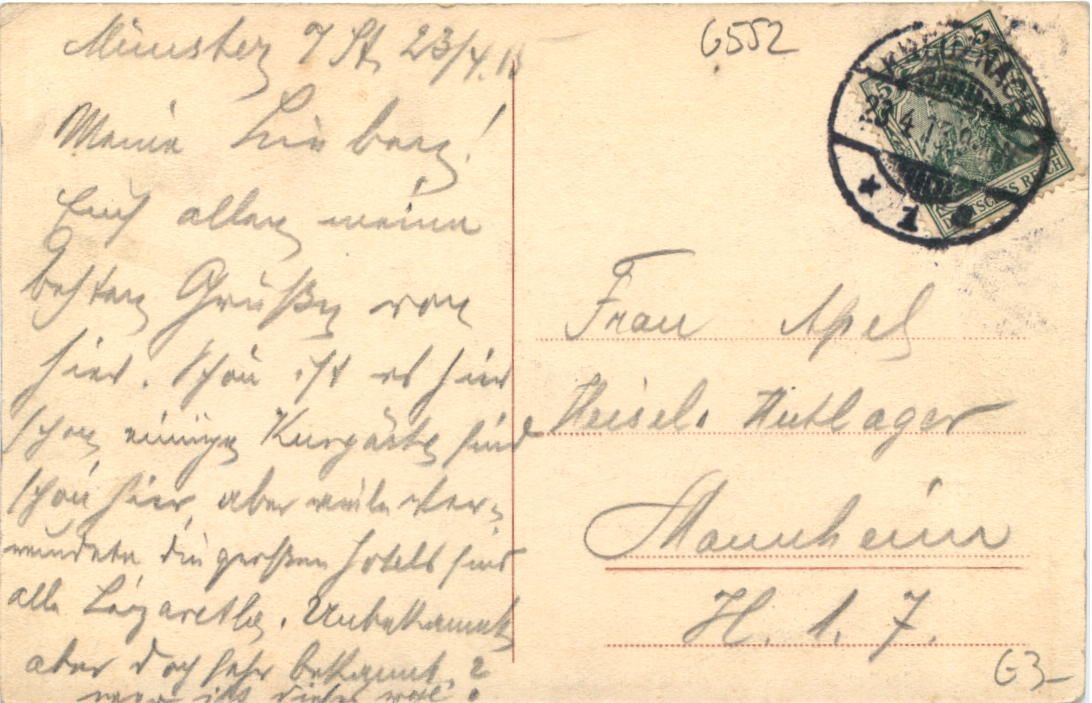 Münster a/St. 23/4.15
6552
Meine Lieben!
Euch allen meine
besten Grüße von
hier. Schön ist es hier
schon einige Kurgäste sind
schon hier aber viele Ver-
wundete die großen Hotels sind
alle Lazarethe. Unbekannt
aber doch sehr bekannt?
wer ist dieses wohl?
5
KREUZNACH
23.4.15
* 1 e
DEUTSCHES REICH
Frau Apel
Heisels Hutlager
Mannheim
H. 1. 7.
G3-